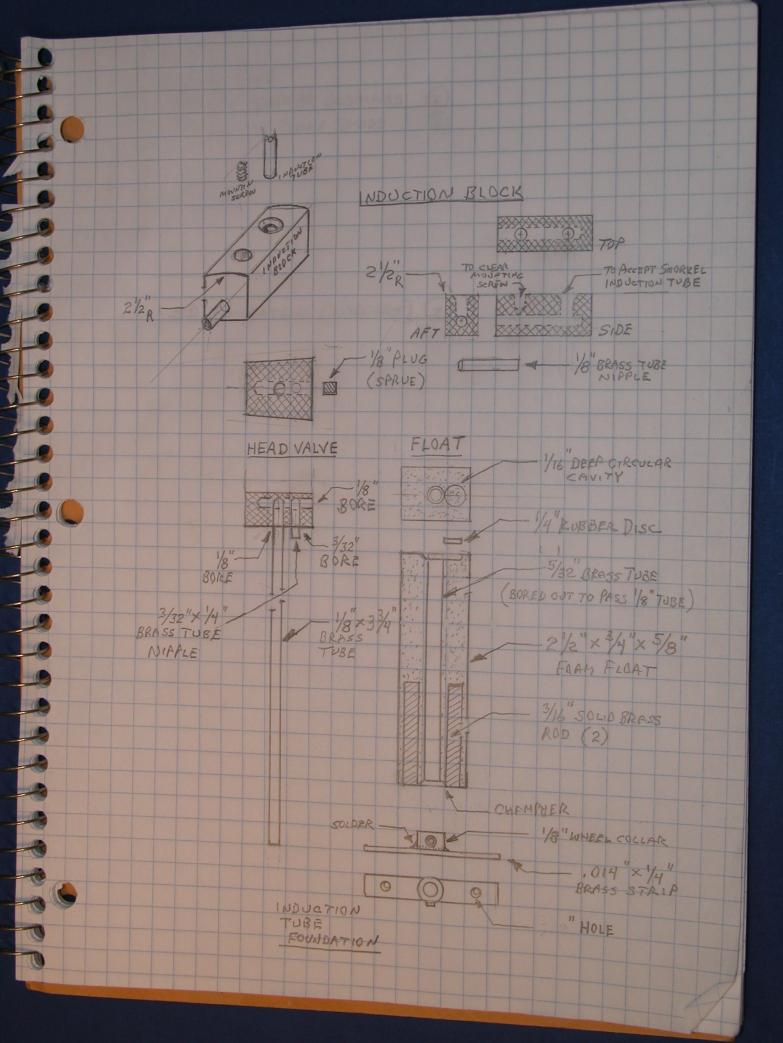 MOUNTING
SCREW
INDUCTION
TUBE
INDUCTION BLOCK
INDUCTION
BLOCK
2 1/2" R
TOP
2 1/2" R
TO CLEAR
MOUNTING
SCREW
TO ACCEPT SNORKEL
INDUCTION TUBE
AFT
SIDE
1/8" PLUG
(SPRUE)
1/8" BRASS TUBE
NIPPLE
HEAD VALVE
FLOAT
1/16" DEEP CIRCULAR
CAVITY
1/8"
BORE
1/4" RUBBER DISC
1/8"
BORE
3/32"
BORE
5/32" BRASS TUBE
(BORED OUT TO PASS 1/8" TUBE)
3/32" x 1/4"
BRASS TUBE
NIPPLE
1/8" x 3 3/4"
BRASS
TUBE
2 1/2" x 3/4" x 5/8"
FOAM FLOAT
3/16" SOLID BRASS
ROD (2)
CHAMPHER
SOLDER
1/8" WHEEL COLLAR
.014" x 1/4"
BRASS STRIP
INDUCTION
TUBE
FOUNDATION
" HOLE